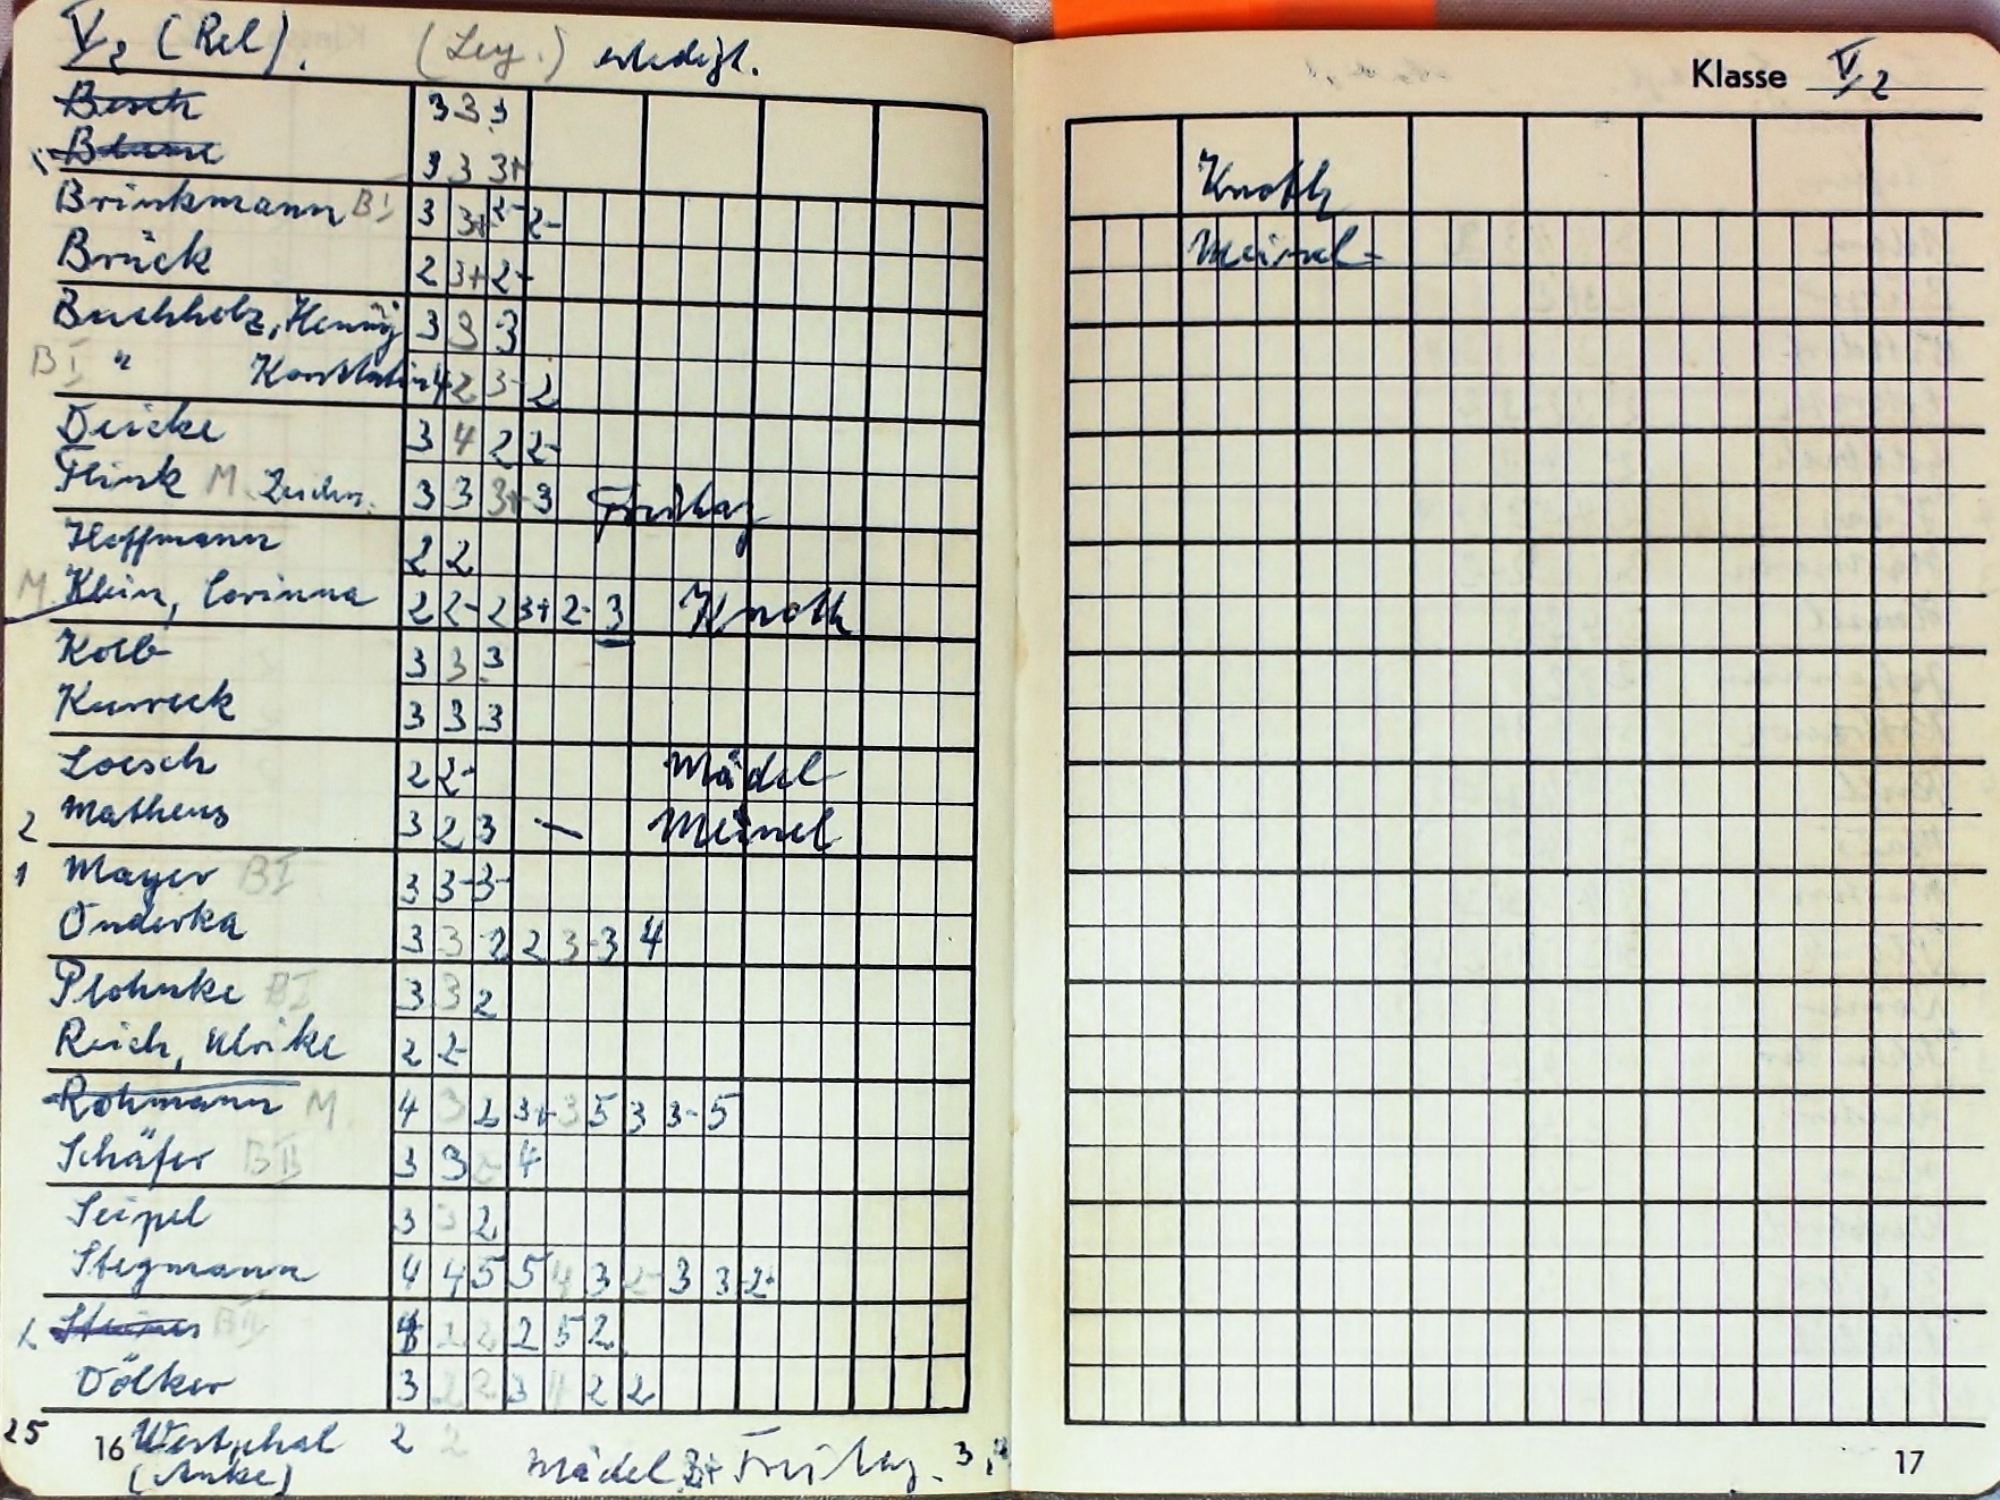 V/2 (Rel). (Ley.) erledigt.
Besch 3 3 3
Blume 3 3 3+
Brinkmann BI 3 3+ 2- 2-
Brück 2 3+ 2-
Buchholz, Hennig 3 3 3
BI " 4 2 3- 2
Deicke 3 4 2 2-
Flink M. Zeichn. 3 3 3+ 3 Freitag
Hoffmann 2 2
M. Klein, Corinna 2 2- 2 3+ 2- 3 Knoth
Kolb 3 3 3
Kurreck 3 3 3
Loesch 2 2- Mädel
2 Matheus 3 2 3 — Meinel
1 Mayer BI 3 3- 3-
Onderka 3 3 2 2 3- 3 4
Plohnke BI 3 3 2
Reich, Ulrike 2 2-
Rohmann M. 4 3 2 3+ 3 5 3 3- 5
Schäfer BII 3 3 2 4
Seipel 3 3 2
Stegmann 4 4 5 5 4 3 2- 3 3 2-
BII 4 2 2 2 5 2
Völker 3 2 2 3 4 2 2
25 Westphal 2 2
(Anke) Mädel 3+ Freitag. 3,
16
Klasse V/2
Knoth
Meinel
17